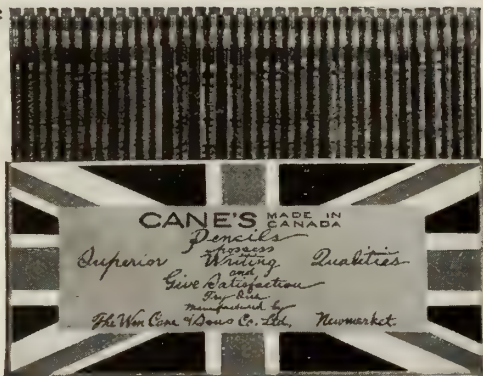 CANE'S MADE IN CANADA
Pencils
possess
Superior Writing Qualities
and
Give Satisfaction
Try Our
Manufactured by
The Wm Cane & Sons Co. Ltd, Newmarket.